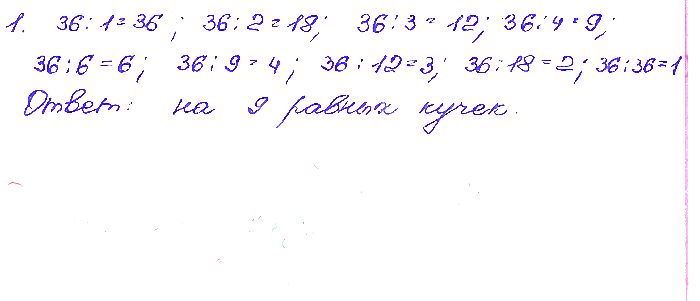 1. 36:1=36; 36:2=18; 36:3=12; 36:4=9;
36:6=6; 36:9=4; 36:12=3; 36:18=2; 36:36=1
Ответ: на 9 равных кучек.